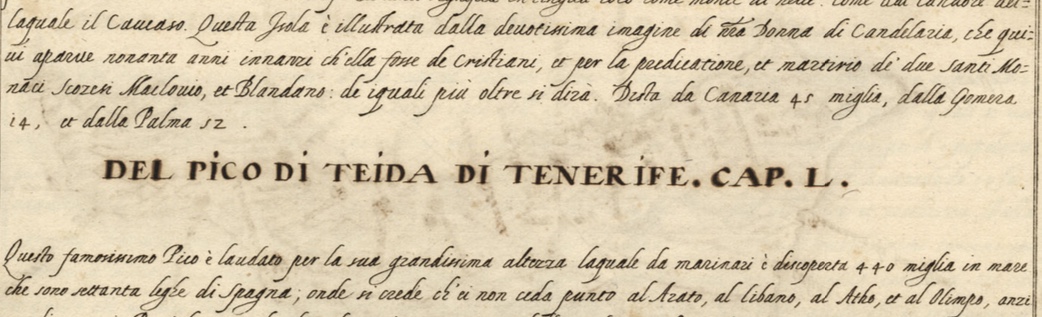 laquale il Caucaso. Questa Isola è illustrata dalla deuotissima imagine di nr̃a Donna di Candelaria, che qui=
ui aparue nonanta anni innanzi ch'ella fosse de Cristiani, et per la predicatione, et martirio de' due santi Mo=
naci Scozesi Maclouio, et Blandano: de iquali più oltre si dirà. Dista da Canaria 45 miglia, dalla Gomera
14, et dalla Palma 52.
DEL PICO DI TEIDA DI TENERIFE. CAP. L.
Questo famosissimo Pico è laudato per la sua grandissima altezza laquale da marinari è discoperta 440 miglia in mare
che sono settanta leghe di Spagna; onde si crede ch'ei non ceda punto al Arato, al Libano, al Atho, et al Olimpo, anzi